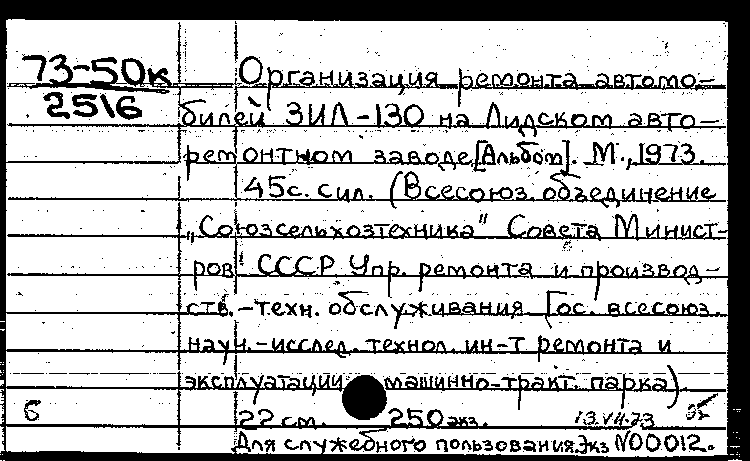 73-50к
2516
Организация ремонта автомо-
билей ЗИЛ-130 на Лидском авто-
ремонтном заводе [Альбом]. М., 1973.
45с. с ил. (Всесоюз. объединение
„Союзсельхозтехника" Совета Минист-
ров СССР. Упр. ремонта и производ-
ств.-техн. обслуживания. Гос. всесоюз.
науч.-исслед. технол. ин-т ремонта и
эксплуатации машинно-тракт. парка).
б 22 см. 250 экз. 13.VII.73
Для служебного пользования. Экз N00012.